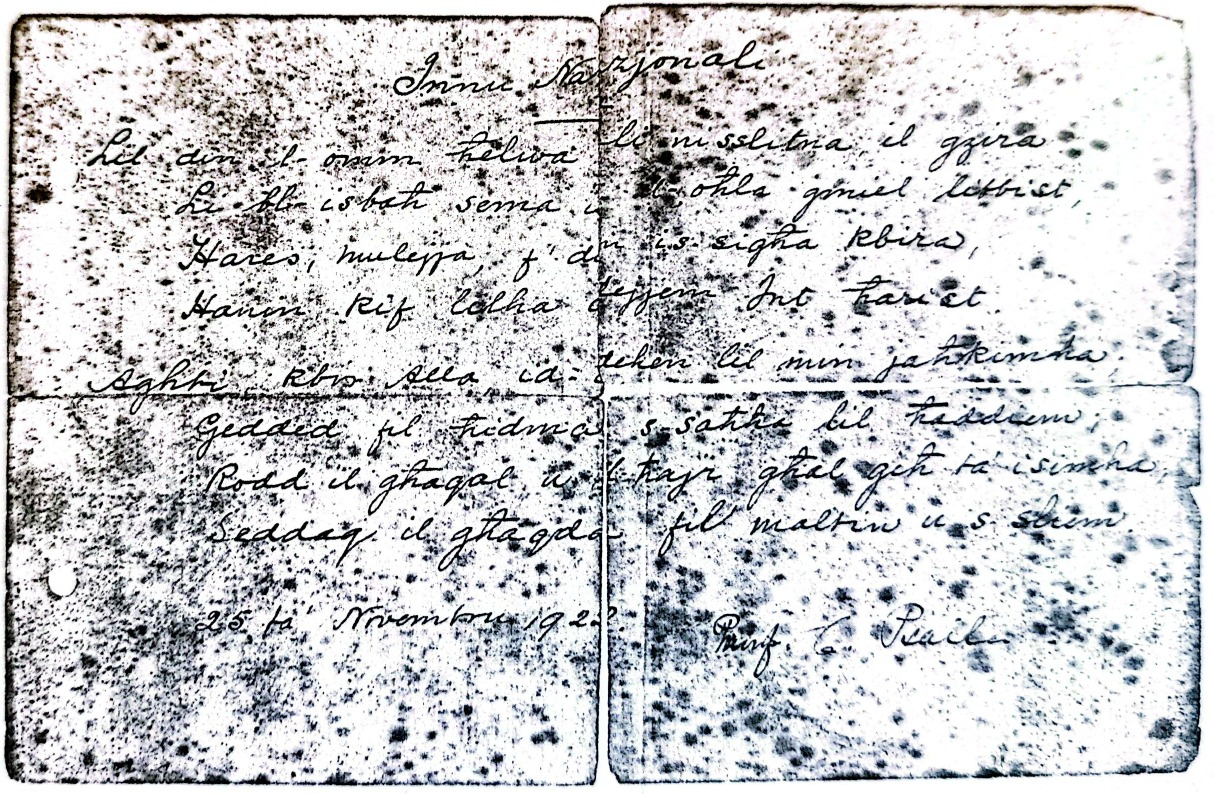 Innu Nazzjonali
Lil din l-omm ħelwa li nisslitna, il gzira
Li bl-isbaħ sema u l oħla gmiel libbist,
Ħares, mulejja, f' din is sigħa kbira,
Ħanin kif lilha dejjem Int ħarist.
Agħti, kbir Alla, id-dehen lil min jaħkimha
Gedded fil ħidma s-saħħa lil ħaddiem,
Rodd il għaqal u l ħajr għal ġieħ ta' isimha,
Seddaq il għaqda fil maltin u s sliem.
25 ta' Novembru, 1922.
Prof. C.